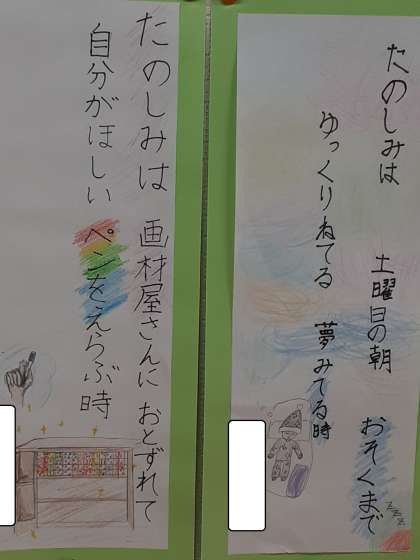 たのしみは
土曜日の朝
おそくまで
ゆっくりねてる
夢みてる時
zzz
たのしみは
画材屋さんに
おとずれて
自分がほしい
ペンをえらぶ時